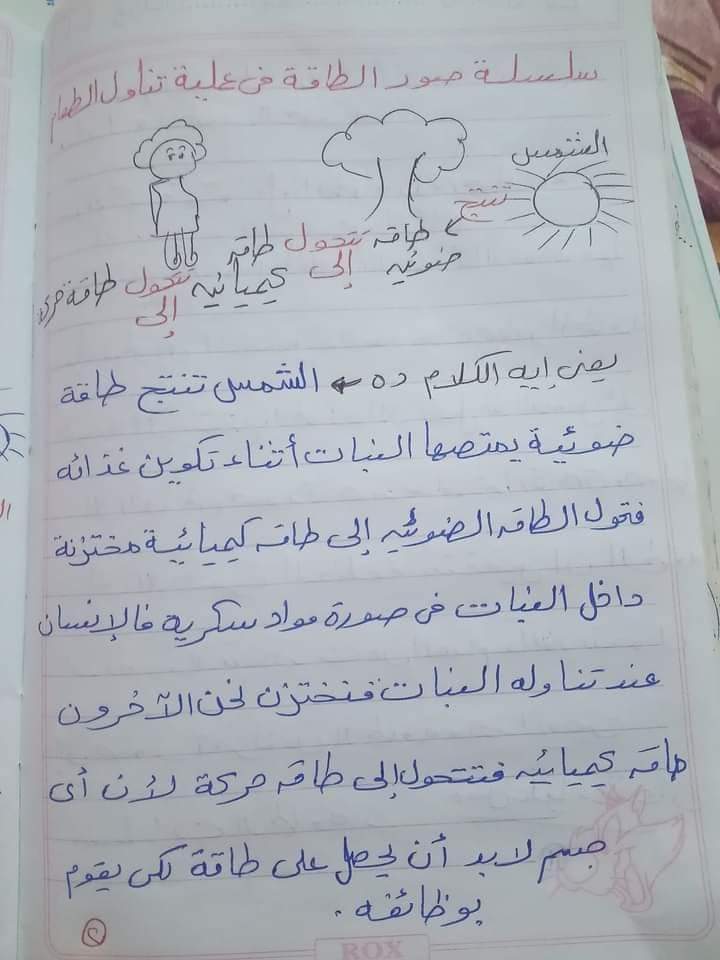 سلسلة صور الطاقة في علية تناول الطعام
الشمس
تنتج
طاقه تتحول طاقه
ضوئيه إلى كيميائيه تتحول طاقة حرك
إلى
يعنى إيه الكلام ده ← الشمس تنتج طاقة
ضوئية يمتصها النبات أثناء تكوين غذائه
فتحول الطاقه الضوئيه إلى طاقه كيميائية مختزنة
داخل النبات فى صورة مواد سكرية فالإنسان
عند تناوله النبات فنختزن نحن الآخرون
طاقه كيميائيه فتتحول إلى طاقه حركة لأن أى
جسم لابد أن يحصل على طاقة لكى يقوم
بوظائفه .
٢
ROX